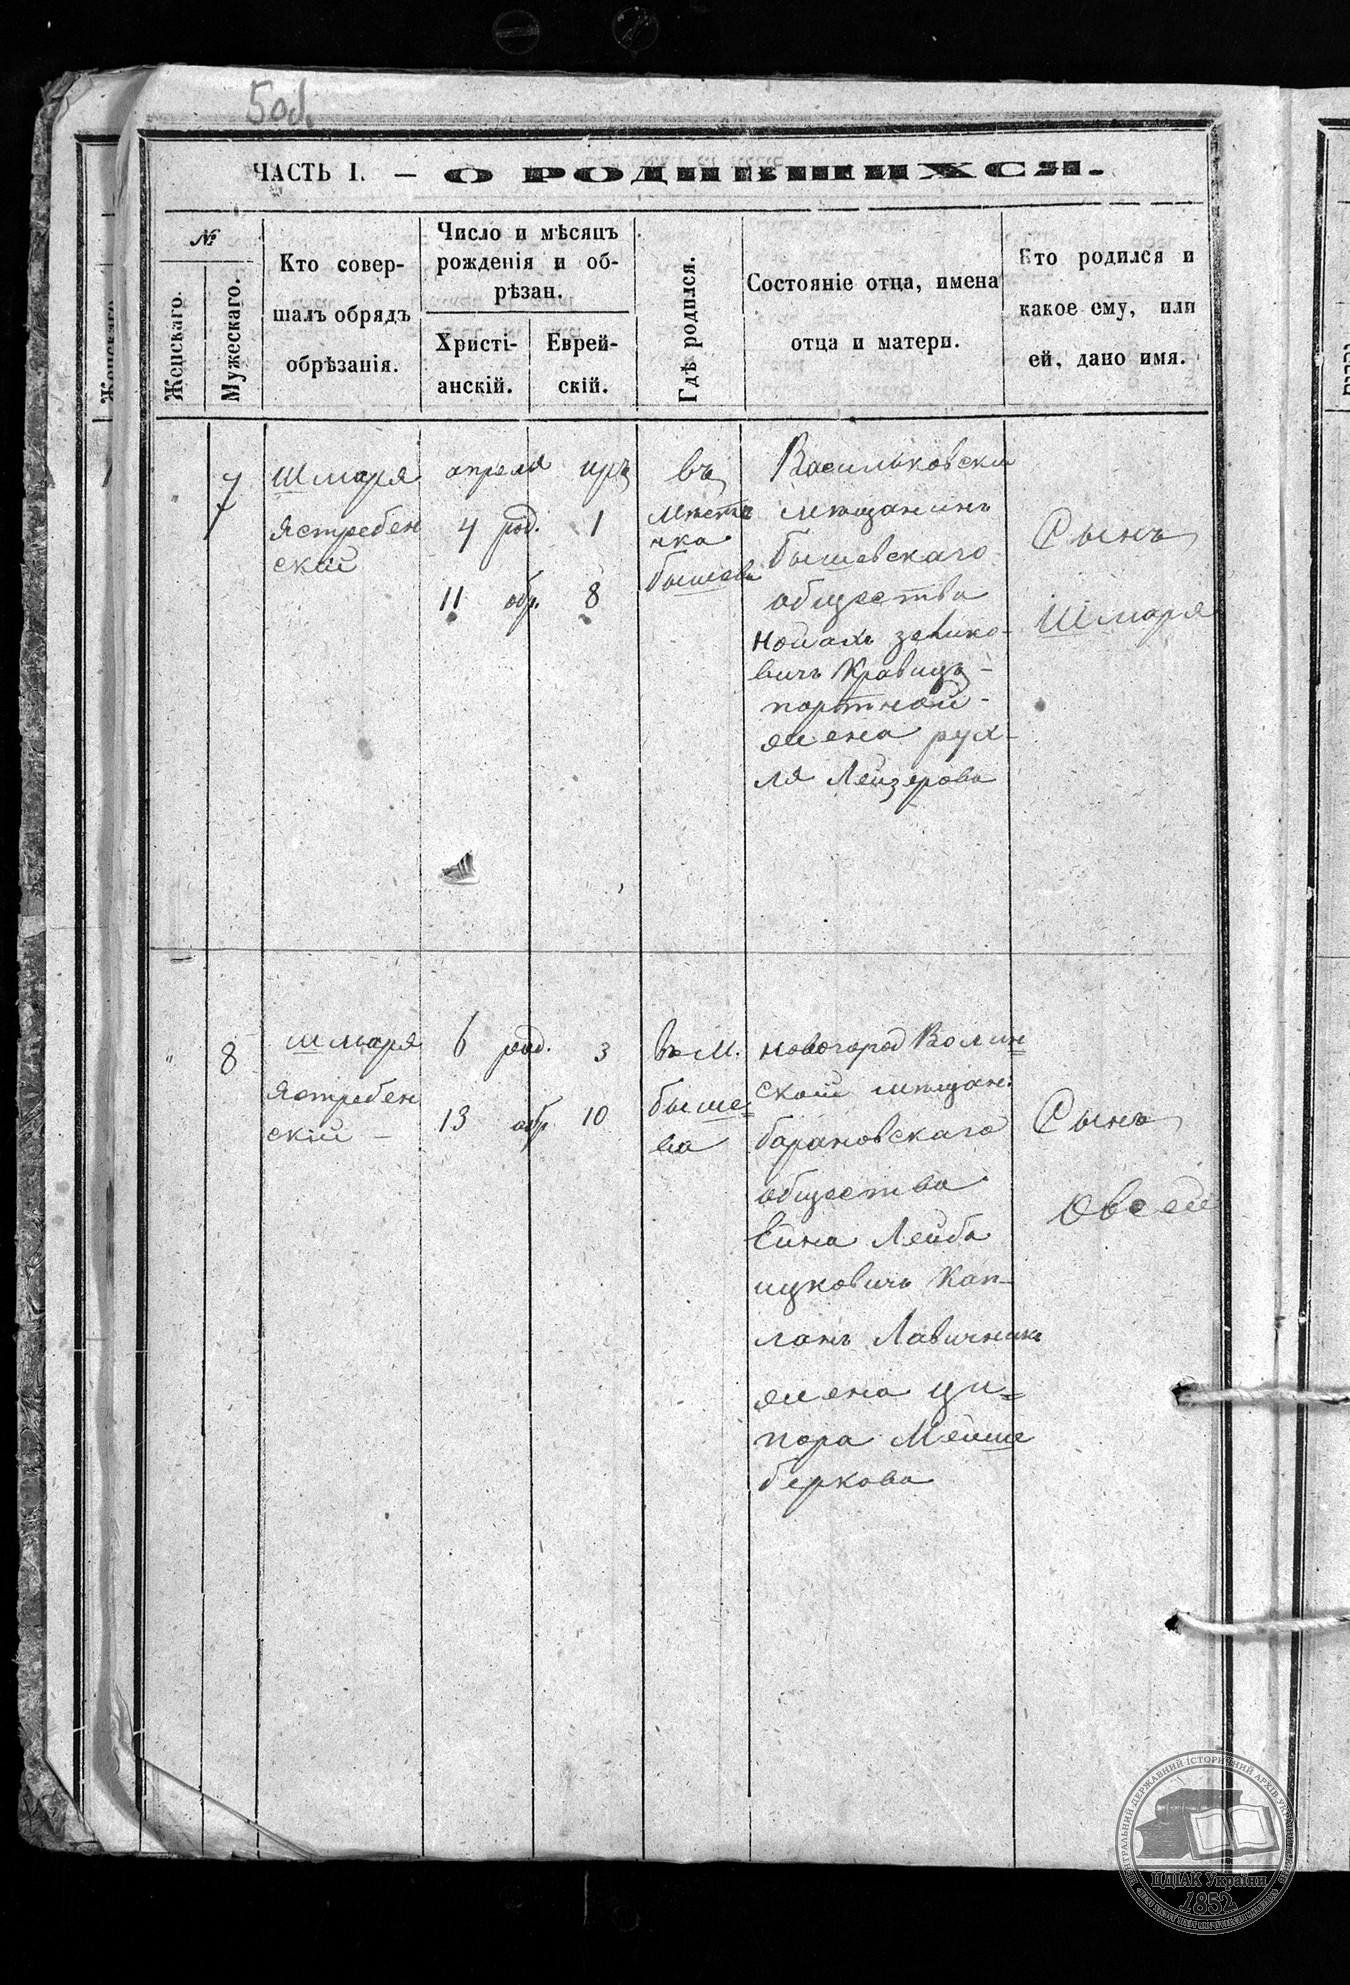 5 об.
ЧАСТЬ I. — О РОДИВШИХСЯ.
№
Женскаго.
Мужескаго.
Кто совер-
шалъ обрядъ
обрѣзанія.
Число и мѣсяцъ
рожденія и об-
рѣзан.
Христі-
анскій.
Еврей-
скій.
Гдѣ родился.
Состояніе отца, имена
отца и матери.
Кто родился и
какое ему, или
ей, дано имя.
"
7
Шмаря
Ястребен
скій
апреля
4 род.
11 обр.
иръ
1
8
въ
мѣстѣ
чка
бышева
Васильковски
мѣщанинъ
бышевскаго
общества
Нойахъ зелико-
вичъ Кравицъ-
портной-
жена рух-
ля Лейзерова
Сынъ
Шмаря
"
8
шмаря
Ястребен
скій —
6 род.
13 обр
3
10
въ м.
быше=
ва
новогород Волин=
ской мѣщан:
барановскаго
общества
Ейна Лейба
ицковичъ Кап-
ланъ Лавичникъ
жена ци=
пора Мейше
беркова
Сынъ
Овсей
ЦЕНТРАЛЬНИЙ ДЕРЖАВНИЙ ІСТОРИЧНИЙ АРХІВ УКРАЇНИ
ЦДІАК України
1852